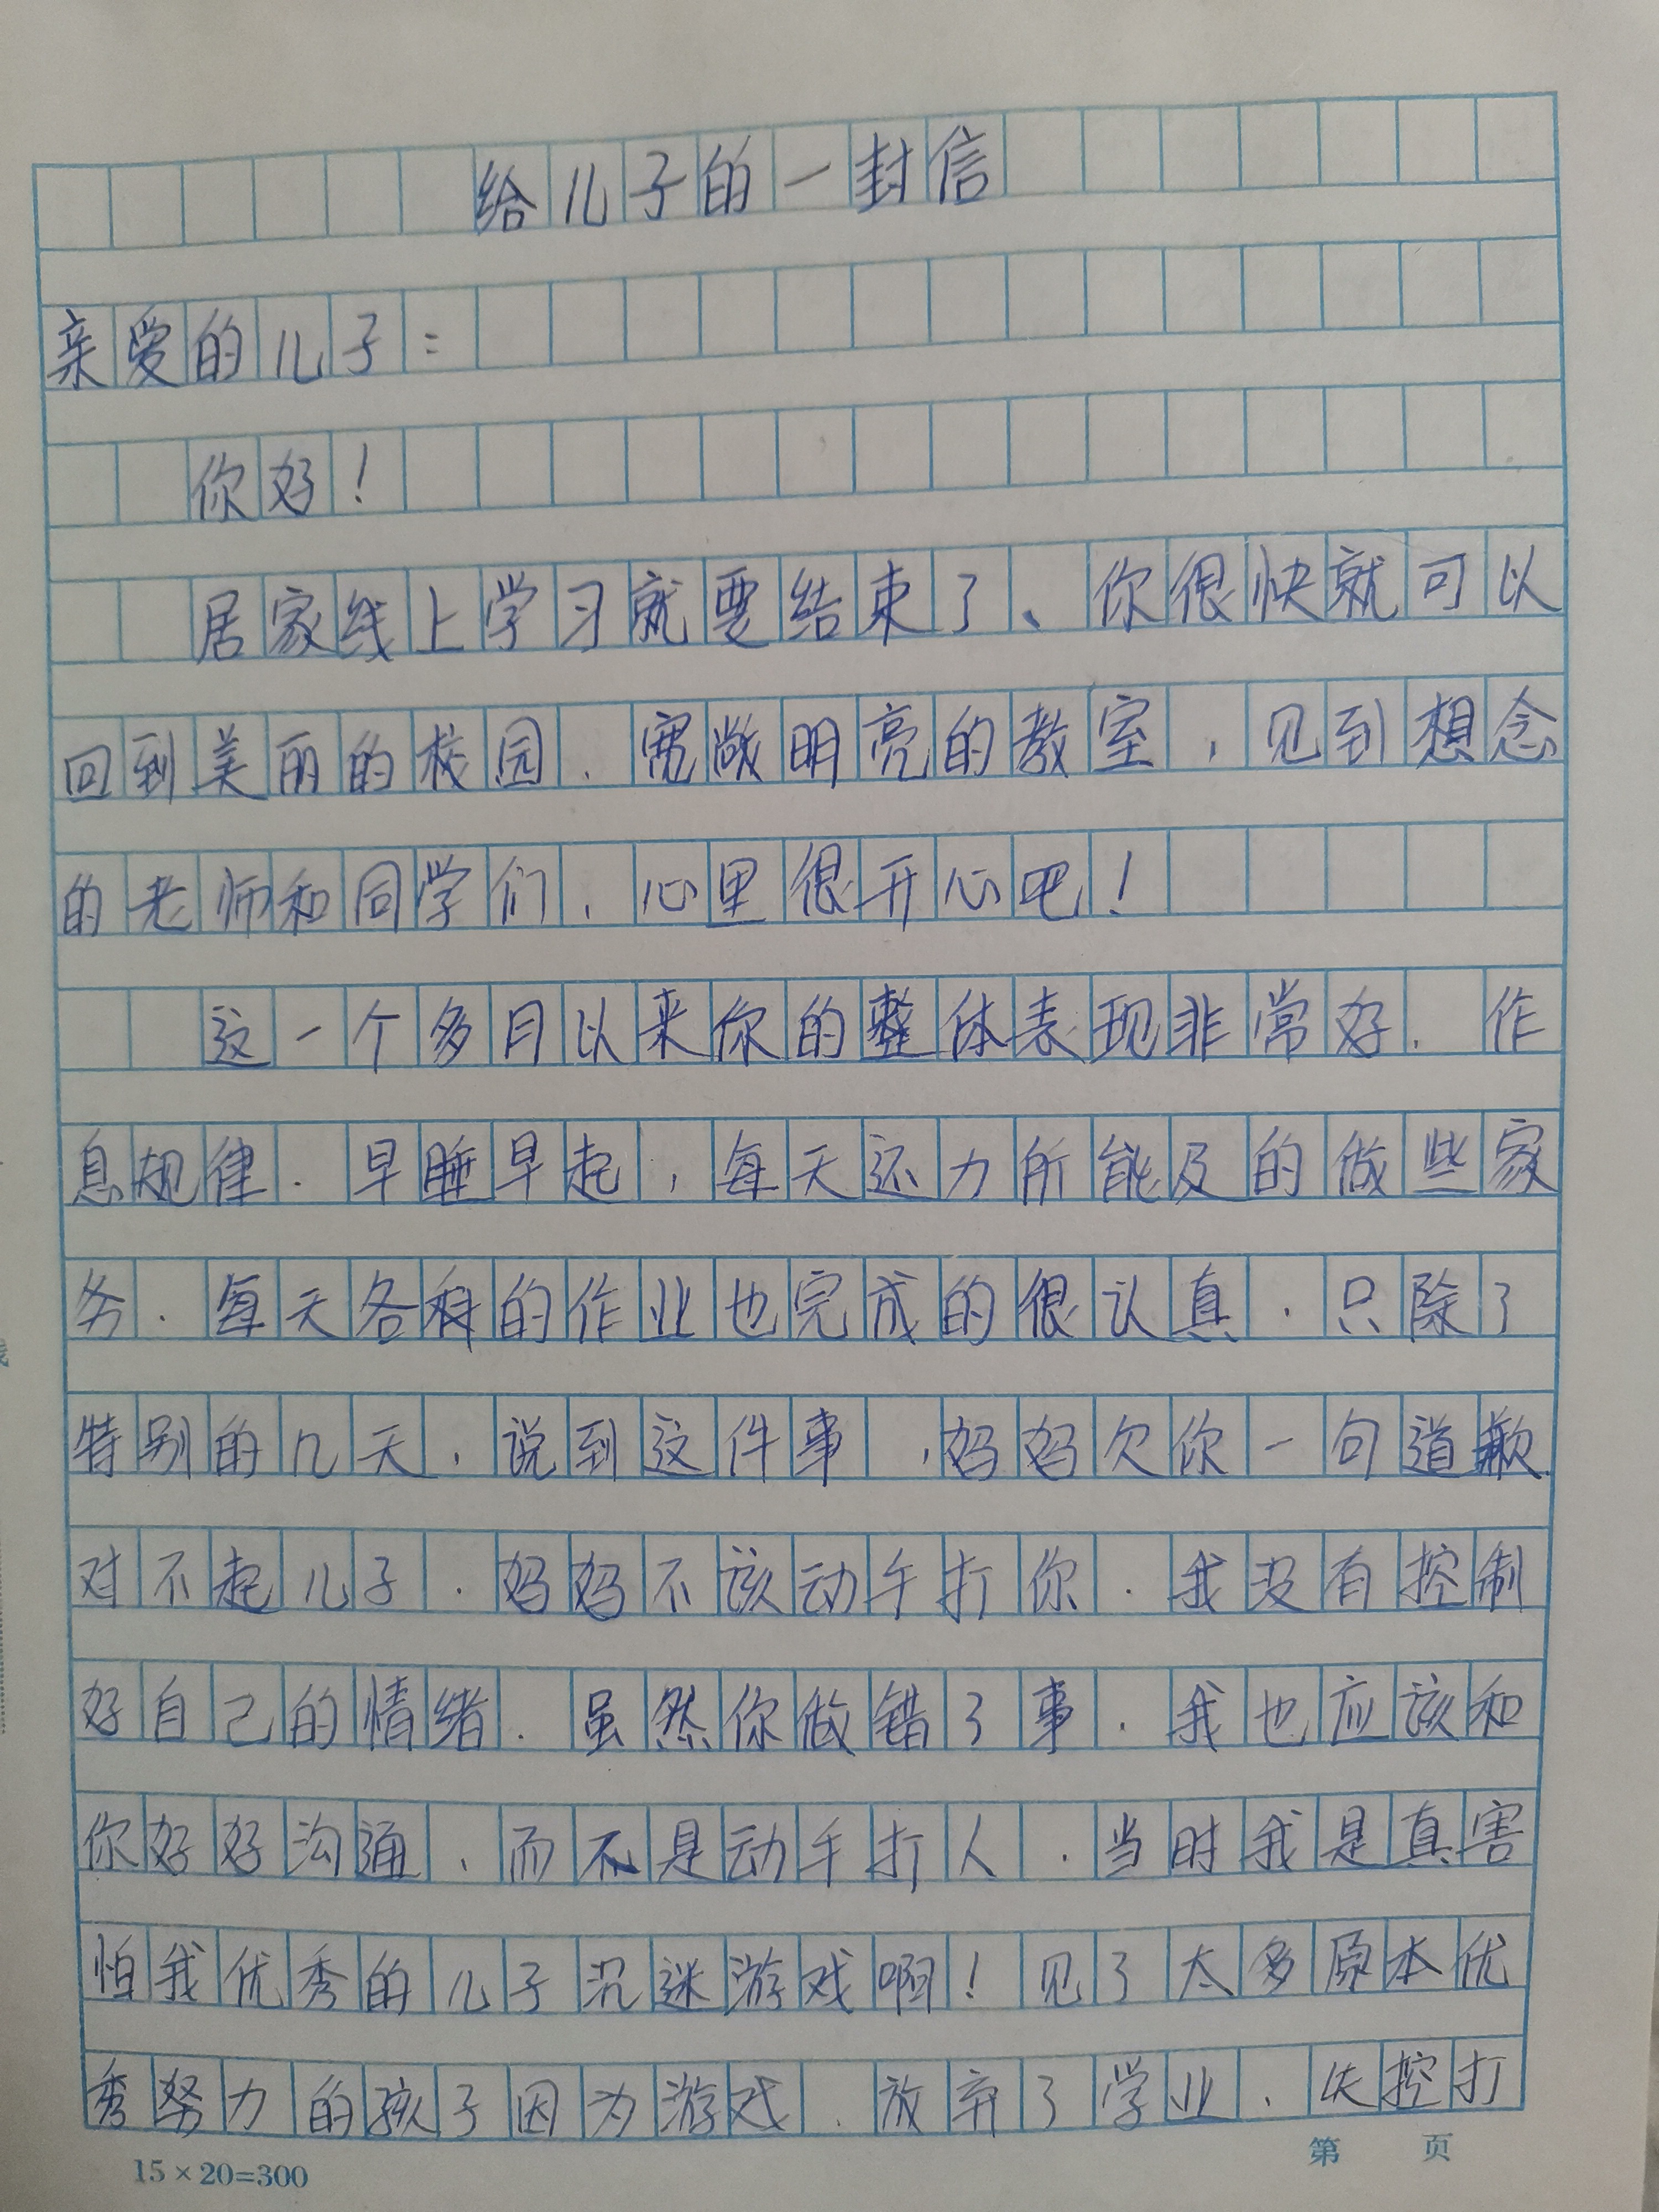 给儿子的一封信
亲爱的儿子：
你好！
居家线上学习就要结束了、你很快就可以
回到美丽的校园、宽敞明亮的教室，见到想念
的老师和同学们，心里很开心吧！
这一个多月以来你的整体表现非常好，作
息规律．早睡早起，每天还力所能及的做些家
务．每天各科的作业也完成的很认真．只除了
特别的几天，说到这件事，妈妈欠你一句道歉．
对不起儿子．妈妈不该动手打你．我没有控制
好自己的情绪．虽然你做错了事．我也应该和
你好好沟通、而不是动手打人．当时我是真害
怕我优秀的儿子沉迷游戏啊！见了太多原本优
秀努力的孩子因为游戏．放弃了学业、失控打
15×20=300
第 页